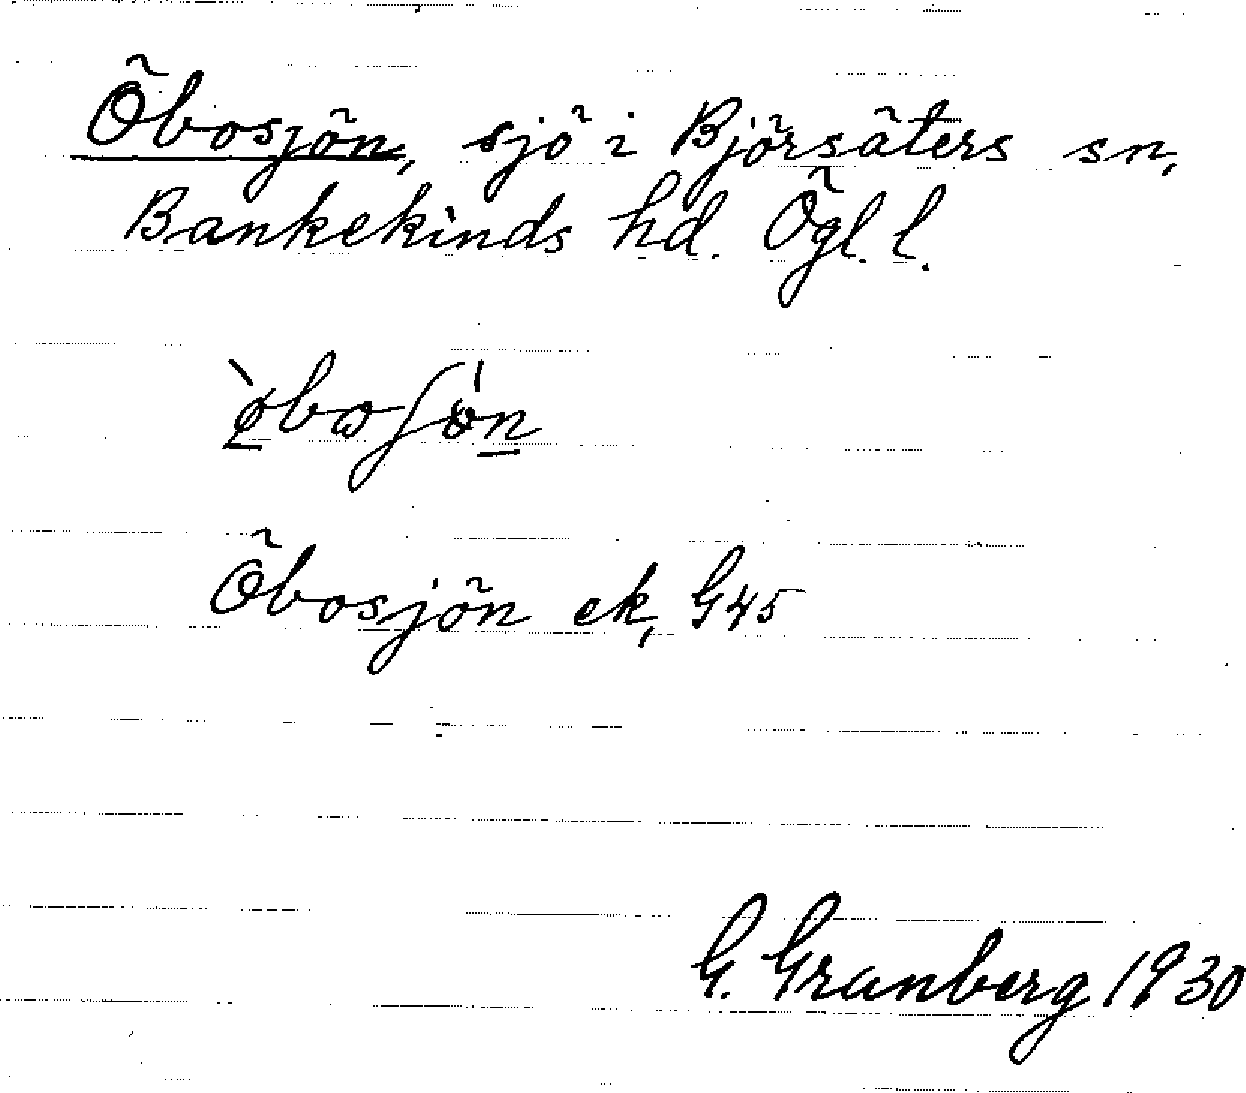 Öbosjön, sjö i Björsäters sn,
Bankekinds hd. Ögl. l.
Öbosjön ek, G45
G. Granberg 1930